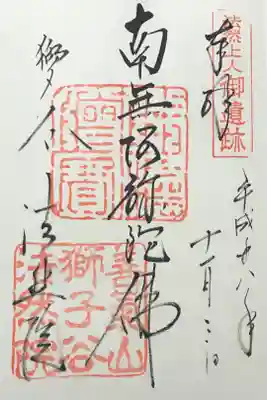 法然上人御遺跡
奉拝
平成廿八年
十一月三日
南無阿弥陀佛
僧寶
獅々谷 法然院
善氣山
獅子谷
法然院